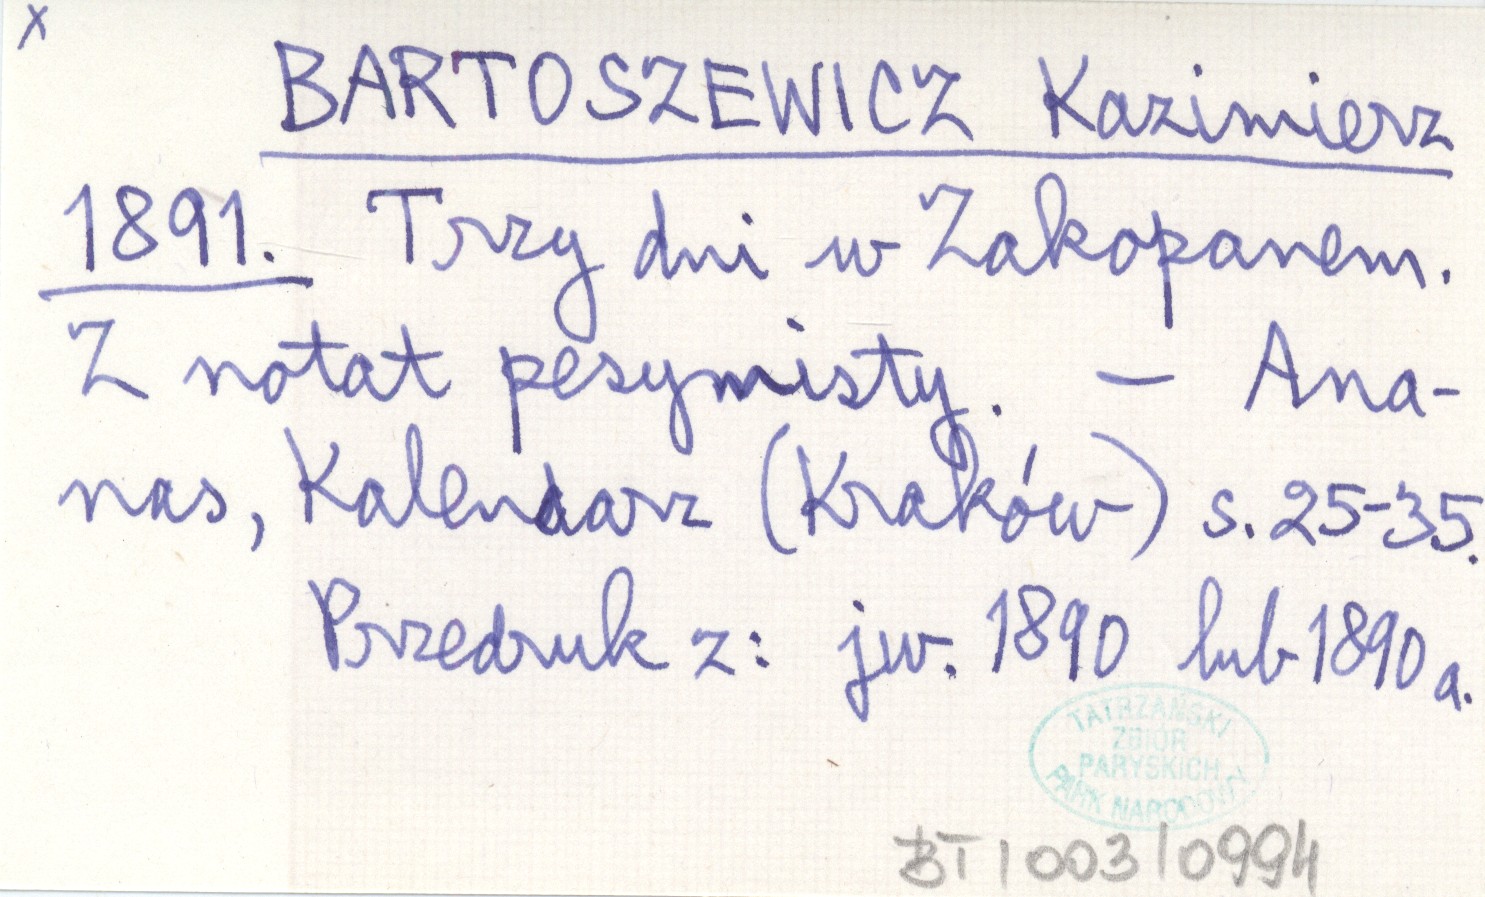 x
BARTOSZEWICZ Kazimierz
1891. Trzy dni w Zakopanem.
Z notat pesymisty. – Ana-
nas, Kalendarz (Kraków) s. 25-35.
Przedruk z: jw. 1890 lub 1890a.
TATRZAŃSKI
ZBIÓR
PARYSKICH
PARK NARODOWY
BT/003/0994